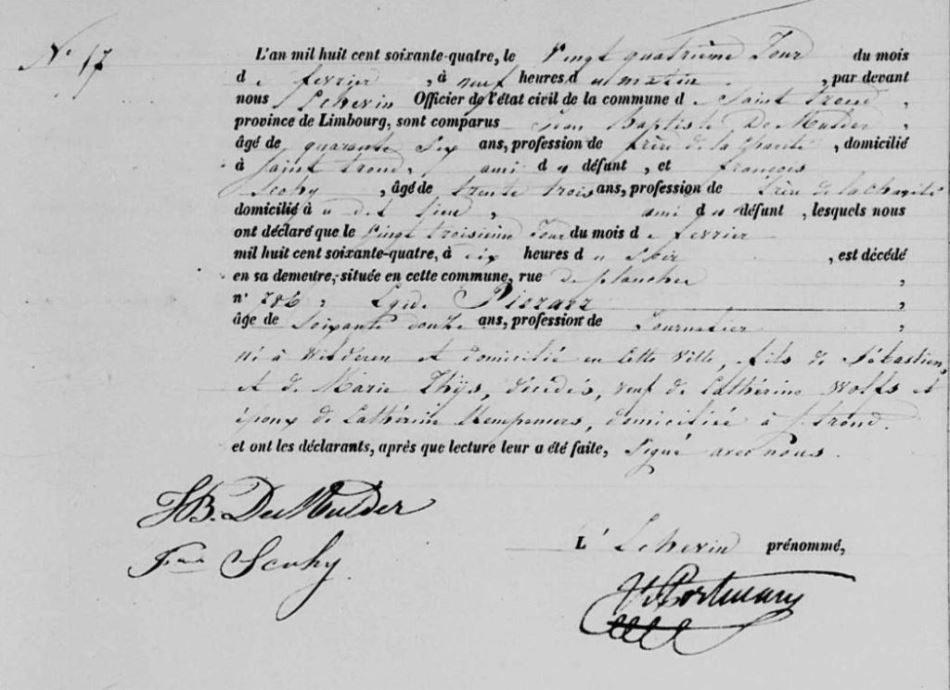 N° 17
L'an mil huit cent soixante-quatre, le Vingt quatrième Jour du mois
d e fevrier , à neuf heures d u matin , par devant
nous Echevin Officier de l'état civil de la commune d e Saint Trond ,
province de Limbourg, sont comparus Jean Baptiste De Mulder ,
âgé de quarante Six ans, profession de frère de la charité , domicilié
à Saint Trond, ami d u défunt , et François
Scohy , âgé de trente trois ans, profession de frère de la charité
domicilié à u dit lieu , ami d u défunt , lesquels nous
ont déclaré que le Vingt troisième Jour du mois d e fevrier
mil huit cent soixante-quatre, à dix heures d u Soir , est décédé
en sa demeure, située en cette commune, rue de plancher ,
n° 786 , Egide Pierarz ,
âge de Soixante douze ans, profession de Journalier ,
né à Wilderen et domicilié en cette Ville, fils de Sébastien,
et de Marie Thys, décédés, veuf de Cathérine Wolfs et
époux de Cathérine Kempeners, domiciliée à S. trond.
et ont les déclarants, après que lecture leur a été faite, Signé avec nous.
JB. De Mulder
Scohy
L' Echevin prénommé,